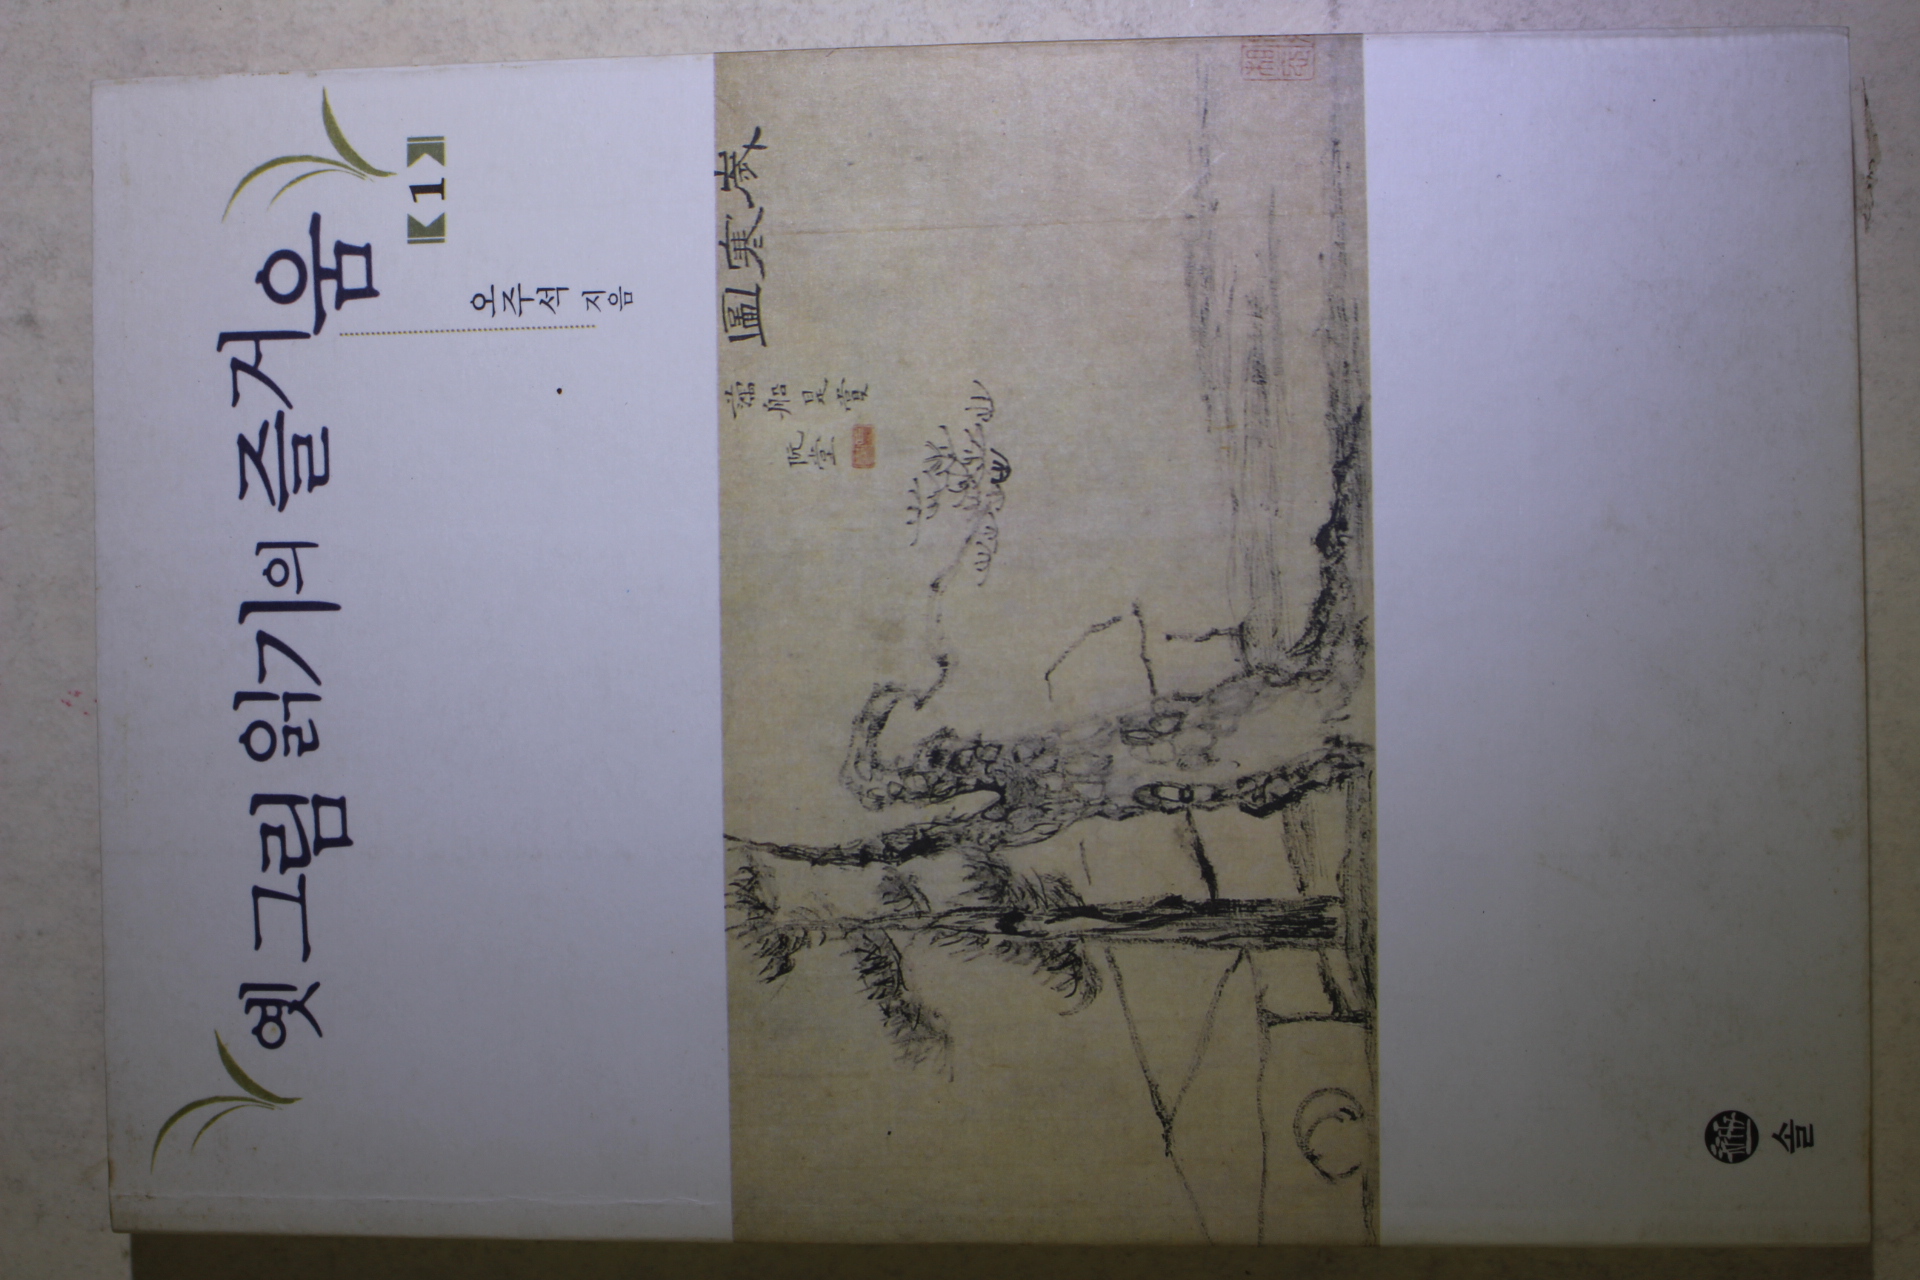 옛 그림 읽기의 즐거움
1
오주석 지음
歲寒圖
藕船是賞
阮堂
솔